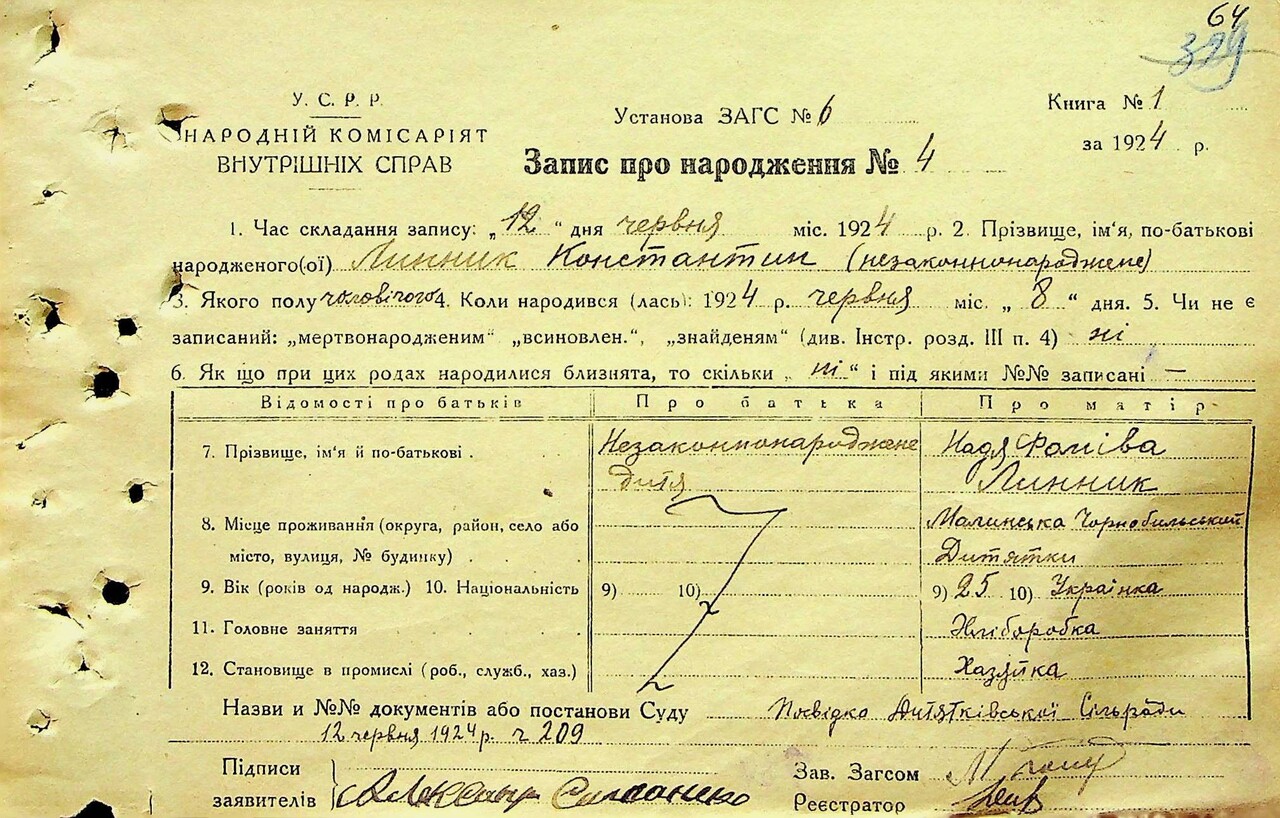 64
329
У. С. Р. Р.
НАРОДНІЙ КОМІСАРІЯТ
ВНУТРІШНІХ СПРАВ
Установа ЗАГС № 6
Книга № 1
за 1924 р.
Запис про народження № 4
1. Час складання запису: „12“ дня червня міс. 1924 р. 2. Прізвище, ім'я, по-батькові
народженого(ої) Линник Константин (незаконнонароджене)
3. Якого полу чоловічого 4. Коли народився (лась): 1924 р. червня міс. „8“ дня. 5. Чи не є
записаний: „мертвонародженим“ „всиновлен.“, „знайденям“ (див. Інстр. розд. III п. 4) ні
6. Як що при цих родах народилися близнята, то скільки „ні“ і під якими №№ записані —
Відомості про батьків Про батька Про матір
7. Прізвище, ім'я й по-батькові . Незаконнонароджене дитя Надя Фомівa Линник
8. Місце проживання (округа, район, село або
місто, вулиця, № будинку) . Малинська Чорнобильський Дитятки
9. Вік (років од народж.) 10. Національність 9) 10) 9) 25 10) Українка
11. Головне заняття Хліборобка
12. Становище в промислі (роб., служб., хаз.) Хазяйка
Назви и №№ документів або постанови Суду Посвідка Дитятківської Сільради
12 червня 1924 р. ч 209
Підписи
заявителів Александр
Зав. Загсом
Реєстратор